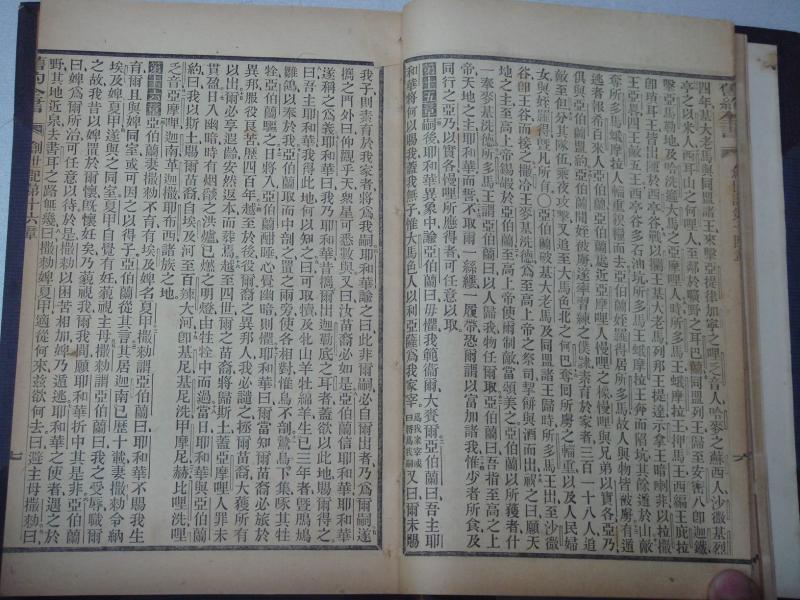 四年基大老馬與同盟諸王來擊亞提律加寧之哩乏音人哈麥之蘇西人沙微基烈
亭之以米人西耳山之何哩人至鄰於曠野之耳巴蘭同盟列王歸至安密八卽迦鐵
擊亞馬勒地及哈洗遜大馬之亞摩哩人時所多馬王蛾摩拉王押馬王西編王庇拉
卽瑣耳王皆出陳於西亭谷戰以攔王基大老馬列邦王提達示拿王暗喇非以拉撒
王亞畧四王敵五王西亭谷多石油坑所多馬王蛾摩拉王奔而陷坑其餘遁於山敵
奪所多馬蛾摩拉人輜重糗糧而去亞伯蘭姪羅得居所多馬故人與物皆被虜有遁
逃者報希百來人亞伯蘭亞伯蘭處近亞摩哩人慢哩之橡慢哩與兄弟以實各亞乃
俱與亞伯蘭盟約亞伯蘭聞姪被虜遂率習練之僕素育於家者三百一十八人追
敵至但分其隊伍乘夜攻擊又追至大馬色北之何巴奪囘所虜之輜重以及人民婦
女與姪羅得曁凡所有〇亞伯蘭破基大老馬及同盟諸王歸時所多馬王出至沙微
谷卽王谷而接之撒冷王麥基洗德爲至高上帝之祭司挈餅與酒而出祝之曰願天
地之主至高上帝錫嘏於亞伯蘭至高上帝使爾制敵當頌美之亞伯蘭以所獲者什
一奉麥基洗德所多馬王謂之曰以人歸我物任爾取亞伯蘭曰吾指至高之上
帝天地之主耶和華而誓不取爾一絲纏一履帶恐爾謂以富加諸我惟少者所食及
同行之亞乃以實各慢哩所應得者可任意以取
第十五章嗣後耶和華異象中諭亞伯蘭曰毋懼我範衞爾大賚爾亞伯蘭曰吾主耶
和華將何以賜我蓋我無子惟大馬色人以利亞薩爲我家宰爲我家宰或曰將爲我嗣又曰爾未賜
我子則素育於我家者將爲我嗣耶和華諭之曰此非爾嗣必自爾出者乃爲爾嗣遂
攜之門外曰仰觀乎天衆星可悉數與又曰爾苗裔必如是亞伯蘭信耶和華耶和華
遂稱之爲義耶和華曰我乃耶和華昔攜爾出迦勒底之耳者蓋欲以此地賜爾得之
曰吾主耶和華我得此地何以知之曰可取犢及牝山羊牡綿羊生已三年者曁鳲鳩
雛鴿以奉我亞伯蘭取而中剖之置之兩旁使各相對惟鳥不剖鷙鳥下集啄其牲
牷亞伯蘭驅之日將入亞伯蘭酣睡心覺幽暗則懼耶和華曰爾當知爾苗裔必旅於
異邦服役艮苦歷四百年越至於後役爾裔之異邦人我必譴之拯爾苗裔大獲所有
以出爾必享遐齡安然返本而葬焉越至四世爾之苗裔將歸斯土蓋亞摩哩人罪未
貫盈日入幽暗時有烟燄之洪爐已燃之明燈由牲牷中而過當日耶和華與亞伯蘭
約曰我以斯土賜爾苗裔自埃及河至百辣大河卽基尼基尼洗甲摩尼赫比哩洗哩
乏音亞摩哩迦南革迦撒耶布西諸族之地
第十六章亞伯蘭妻撒勑不育有埃及婢名夏甲撒勑謂亞伯蘭曰耶和華不賜我生
育爾且與婢同室或可因之以得子亞伯蘭從其言其居迦南已歷十載妻撒勑令納
埃及婢夏甲遂與之同室夏甲自覺有妊藐視主母撒勑謂亞伯蘭曰我之受辱職爾
之故我昔以婢置於爾懷旣懷妊矣乃藐視我爾我間願耶和華折中其是非亞伯蘭
曰婢爲爾所治可任意以待於是撒勑以困苦相加婢乃遁逃耶和華之使者遇之於
野其地近泉去書耳之路無幾曰撒勑婢夏甲適從何來玆欲何去曰避主母撒勑曰
舊約全書 創世記第十六章